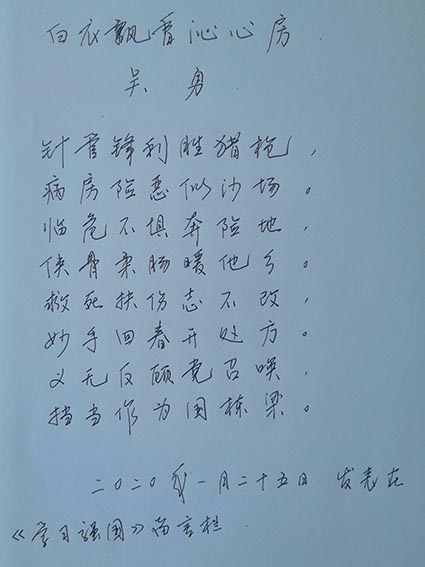 白衣飘香沁心房
吴勇
针管锋利胜猎枪，
病房险恶似沙场。
临危不惧奔险地，
侠骨柔肠暖他乡。
救死扶伤志不改，
妙手回春开处方。
义无反顾党召唤，
担当作为国栋梁。
二〇二〇年一月二十五日 发表在
《学习强国》留言栏